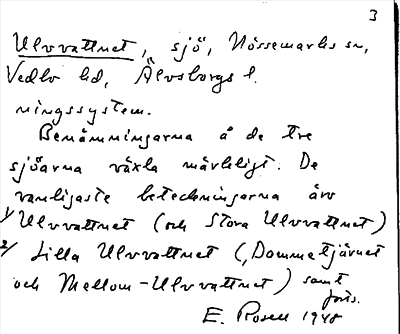 3
Ulvvattnet, sjö, Nössemarks sn,
Vedbo hd, Älvsborgs l.
ningssystem.
Benämningarna å de tre
sjöarna växla märkligt. De
vanligaste beteckningarna äro
1/ Ulvvattnet (och Stora Ulvvattnet)
2/ Lilla Ulvvattnet (, Dammetjärnet
och Mellom-Ulvvattnet) samt
forts.
E. Rosell 1948